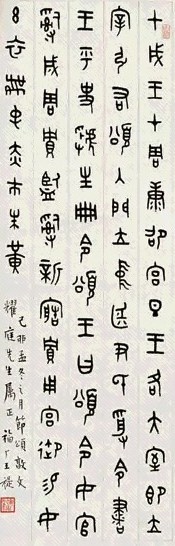 甲戌王才周康卲宮旦王各大室即立
宰引右頌入門立中廷尹氏受令書
王乎史虢生冊令頌王曰頌令女官
𤔲成周貯監𤔲新造貯用宮御易女
玄衣黹屯赤巿朱黃
己卯孟冬之月節頌敦文
耀庭先生屬正 福厂王禔